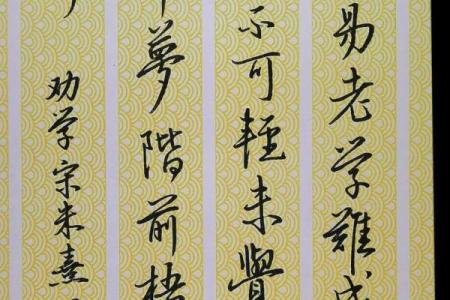 易老学難成
不可軽未覺
夢階前梧
劝学宋朱熹